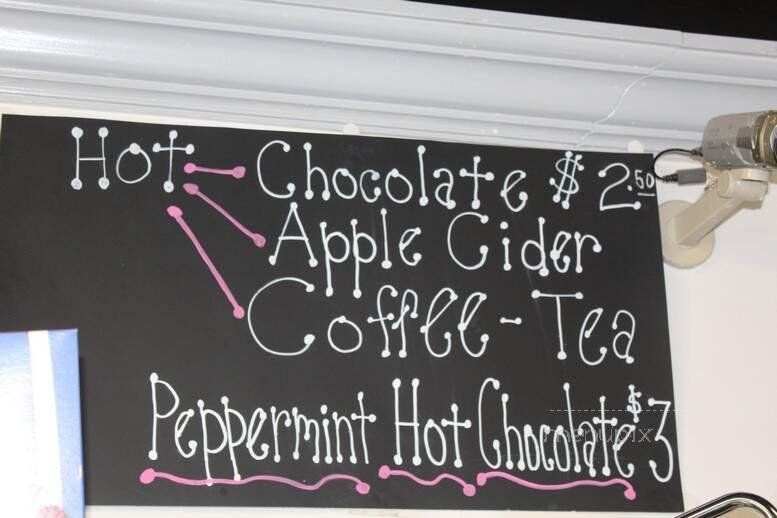 Hot Chocolate $2.50
Apple Cider
Coffee - Tea
Peppermint Hot Chocolate $3
menupix